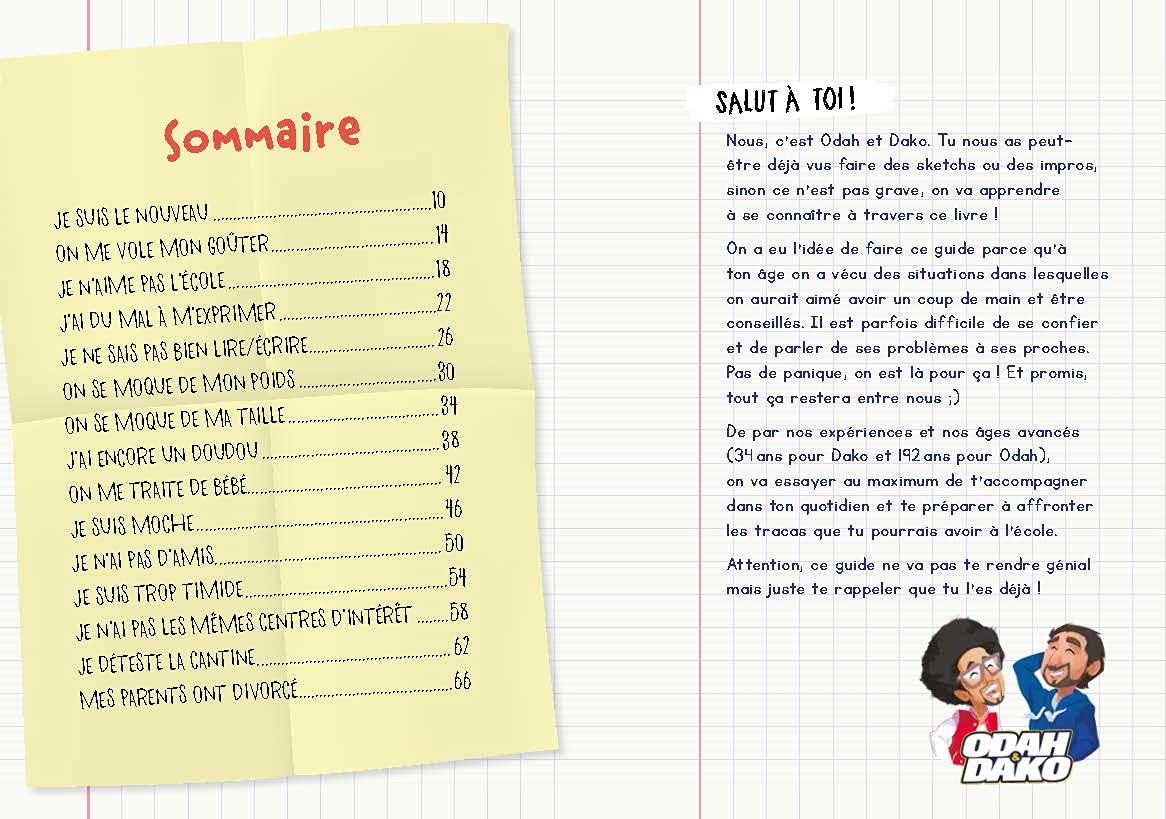 Sommaire
JE SUIS LE NOUVEAU ................................................10
ON ME VOLE MON GOÛTER....................................14
JE N'AIME PAS L'ÉCOLE..............................................18
J'AI DU MAL À M'EXPRIMER ..................................22
JE NE SAIS PAS BIEN LIRE/ÉCRIRE............................26
ON SE MOQUE DE MON POIDS ..............................30
ON SE MOQUE DE MA TAILLE.................................34
J'AI ENCORE UN DOUDOU .......................................38
ON ME TRAITE DE BÉBÉ...........................................42
JE SUIS MOCHE......................................................46
JE N'AI PAS D'AMIS..................................................50
JE SUIS TROP TIMIDE.............................................54
JE N'AI PAS LES MÊMES CENTRES D'INTÉRÊT .......58
JE DÉTESTE LA CANTINE..........................................62
MES PARENTS ONT DIVORCÉ..................................66
SALUT À TOI !
Nous, c'est Odah et Dako. Tu nous as peut-
être déjà vus faire des sketchs ou des impros,
sinon ce n'est pas grave, on va apprendre
à se connaître à travers ce livre !
On a eu l'idée de faire ce guide parce qu'à
ton âge on a vécu des situations dans lesquelles
on aurait aimé avoir un coup de main et être
conseillés. Il est parfois difficile de se confier
et de parler de ses problèmes à ses proches.
Pas de panique, on est là pour ça ! Et promis,
tout ça restera entre nous ;)
De par nos expériences et nos âges avancés
(34 ans pour Dako et 192 ans pour Odah),
on va essayer au maximum de t'accompagner
dans ton quotidien et te préparer à affronter
les tracas que tu pourrais avoir à l'école.
Attention, ce guide ne va pas te rendre génial
mais juste te rappeler que tu l'es déjà !
ODAH
&
DAKO